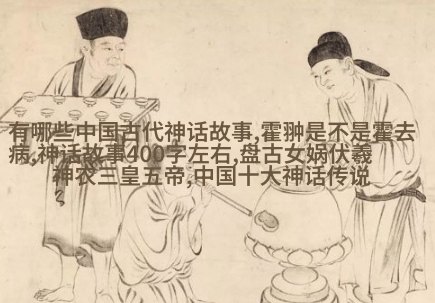 有哪些中国古代神话故事,霍翀是不是霍去
病,神话故事400字左右,盘古女娲伏羲
神农三皇五帝,中国十大神话传说